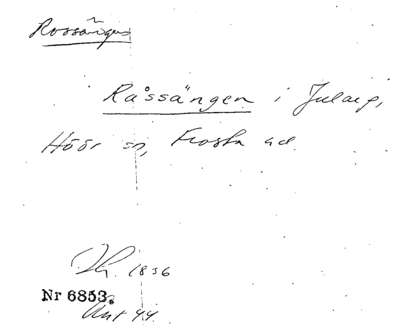 Rossängen
Råssängen i Jularp,
Höör sn, Frosta hd.
1836
Nr 6853.
Ant 44